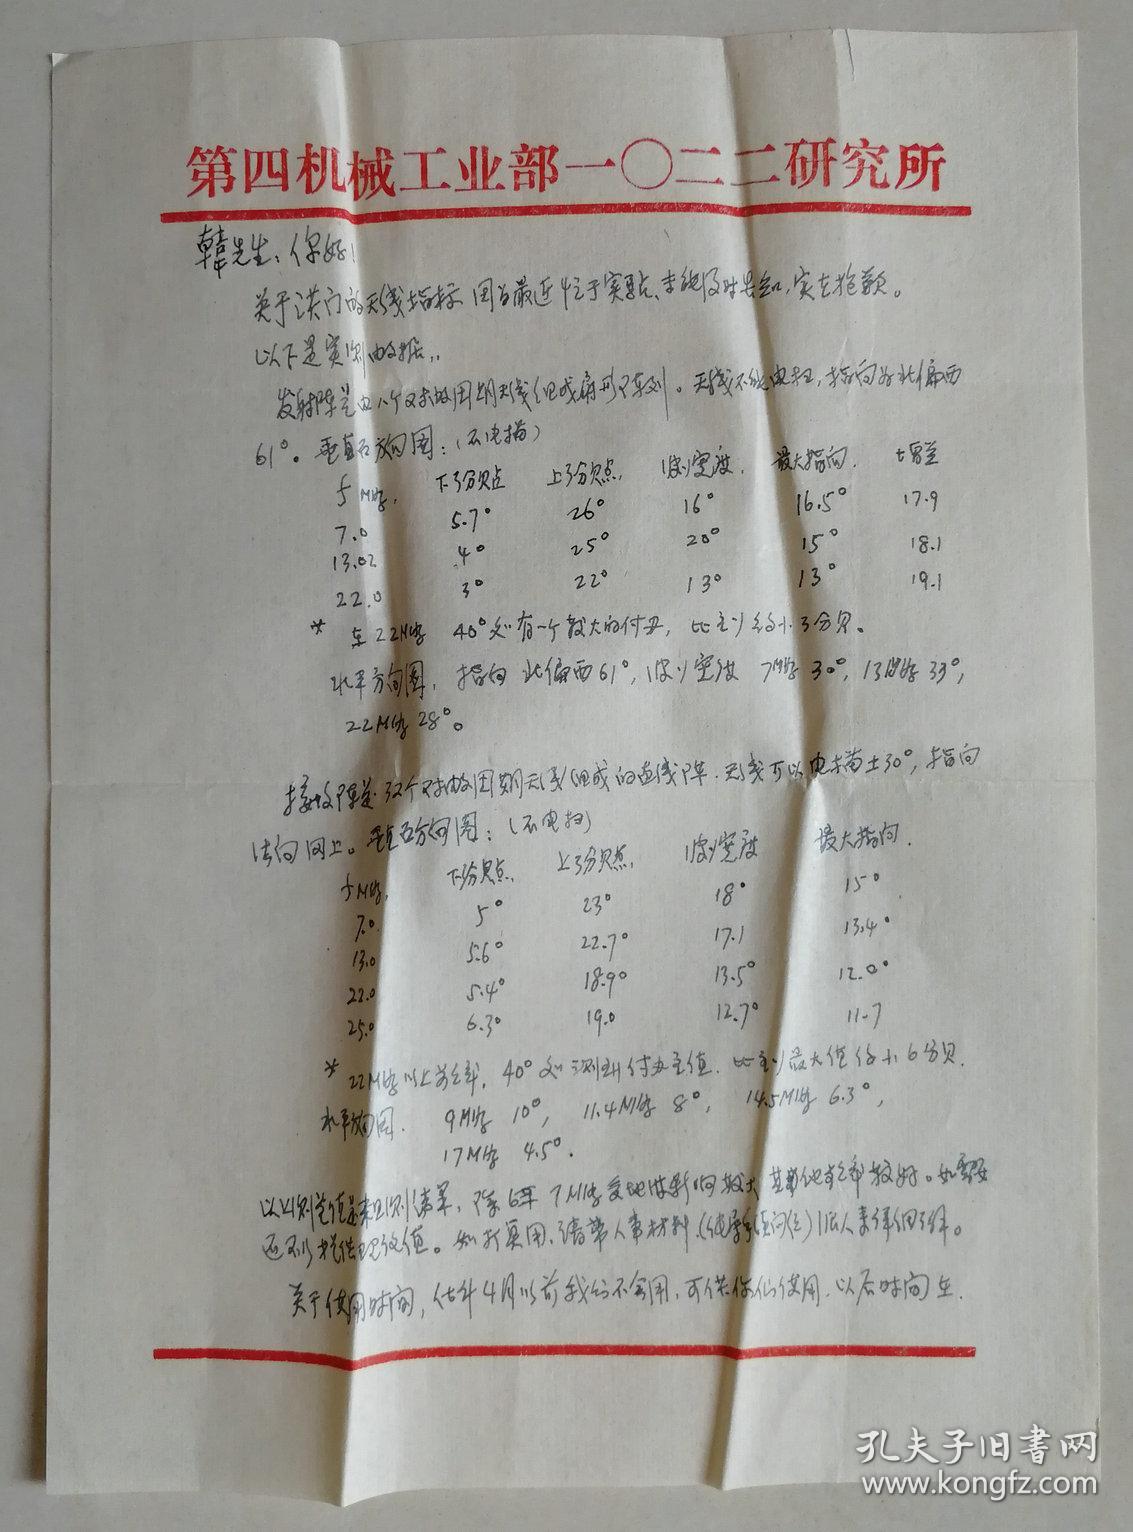 第四机械工业部一〇二二研究所
韩先生：你好！
关于 的天线指标 因为最近忙于实验、未能及时告知，实在抱歉。
以下是实测数据：
发射阵是由八个对数周期天线组成扇形阵列。天线不能电扫，指向为北偏西
61°。垂直面方向图：（不电扫）
f MHz. 下3分贝点 上3分贝点. 波束宽度. 最大指向. 增益
7.0 5.7° 26° 16° 16.5° 17.9
13.02 4° 25° 20° 15° 18.1
22.0 3° 22° 13° 13° 19.1
* 在22MHz 40°处有一个较大的付瓣，比主瓣约小3分贝。
水平方向图，指向北偏西61°，波束宽度 7MHz 30°，13MHz 33°，
22MHz 28°。
接收阵是32个对数周期天线组成的直线阵. 天线可以电扫±30°，指向
法向同上。垂直面方向图：（不电扫）
f MHz. 下3分贝点. 上3分贝点. 波束宽度 最大指向.
7.0 5° 23° 18° 15°
13.0 5.6° 22.7° 17.1 13.4°
22.0 5.4° 18.9° 13.5° 12.0°
25.0 6.3° 19.0 12.7° 11.7
* 22MHz以上频率，40°处测到付瓣 值. 比主瓣最大值约小6分贝.
水平方向图. 9MHz 10°， 11.4MHz 8°， 14.5MHz 6.3°，
17MHz 4.5°.
以上测 值是 测结果， 7MHz受地波影响较大 其他频率较好。如需要
还可以提供理论值。如打算用、请带 材料、 派人来详细了解。
关于使用时间，估计4月以前我们不会用，可供你们使用，以后时间在.
孔夫子旧书网
www.kongfz.com